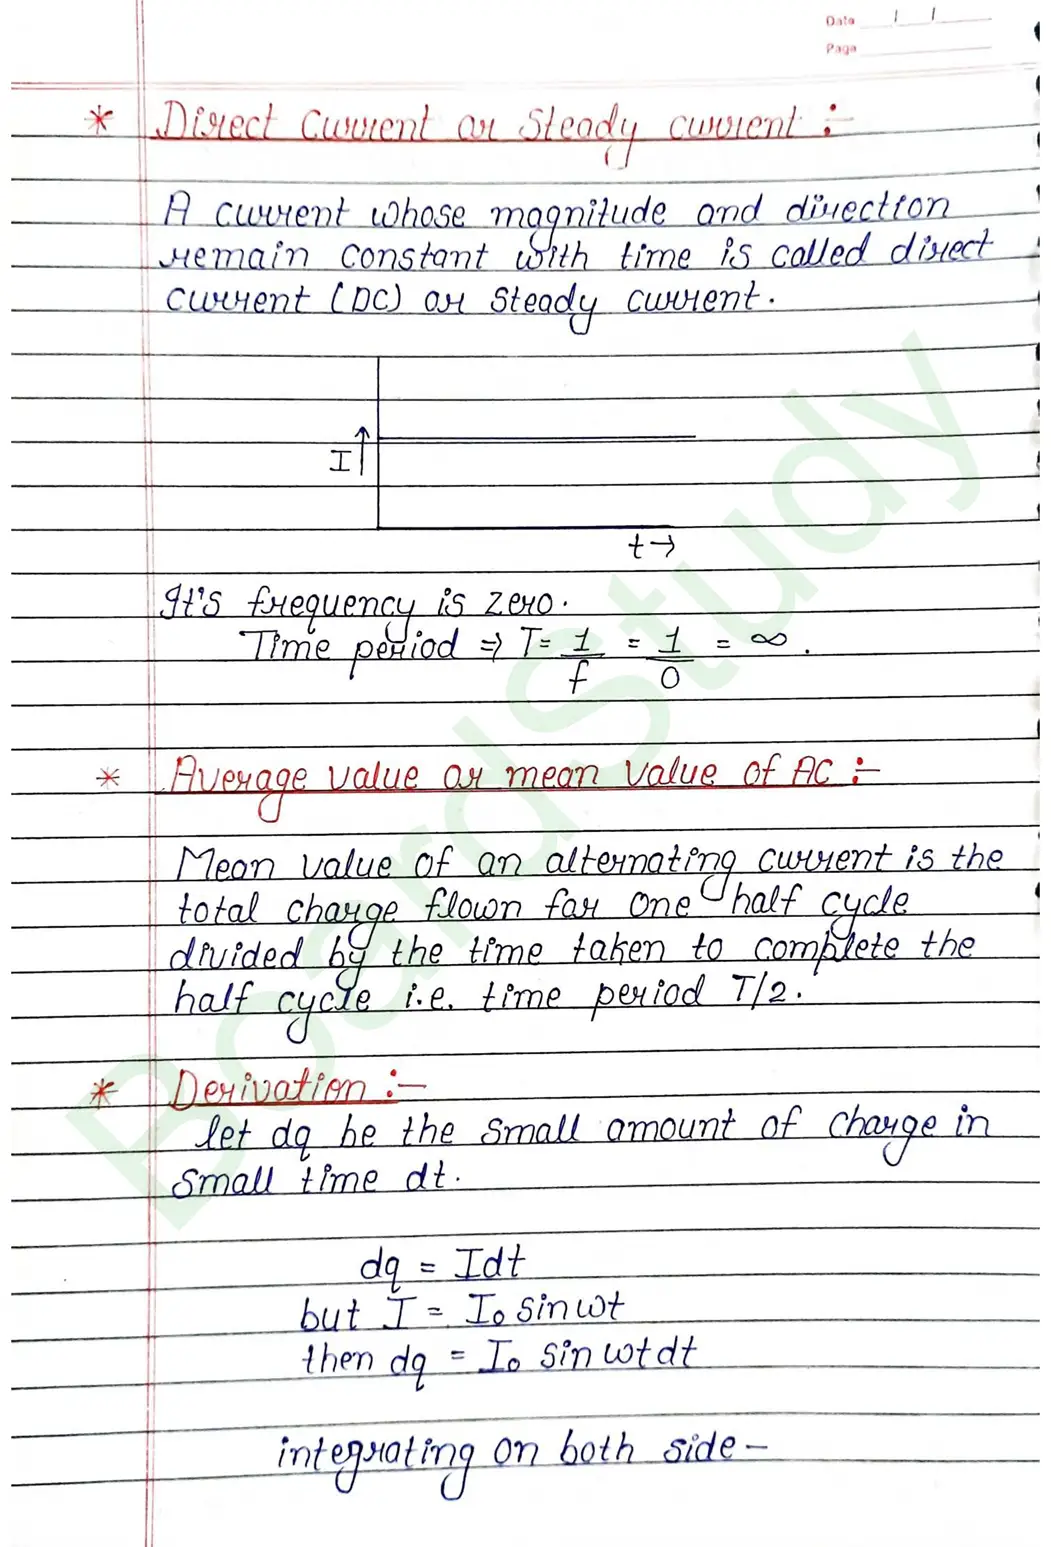 Date / /
Page
* Direct Current or Steady current :-
A current whose magnitude and direction
remain constant with time is called direct
current (DC) or steady current.
I↑
t→
It's frequency is zero.
Time period ⇒ T = 1/f = 1/0 = ∞.
* Average value or mean value of AC :-
Mean value of an alternating current is the
total charge flown for one half cycle
divided by the time taken to complete the
half cycle i.e. time period T/2.
* Derivation :-
let dq be the small amount of charge in
small time dt.
dq = Idt
but I = I₀ sin wt
then dq = I₀ sin wt dt
integrating on both side -
BoardStudy